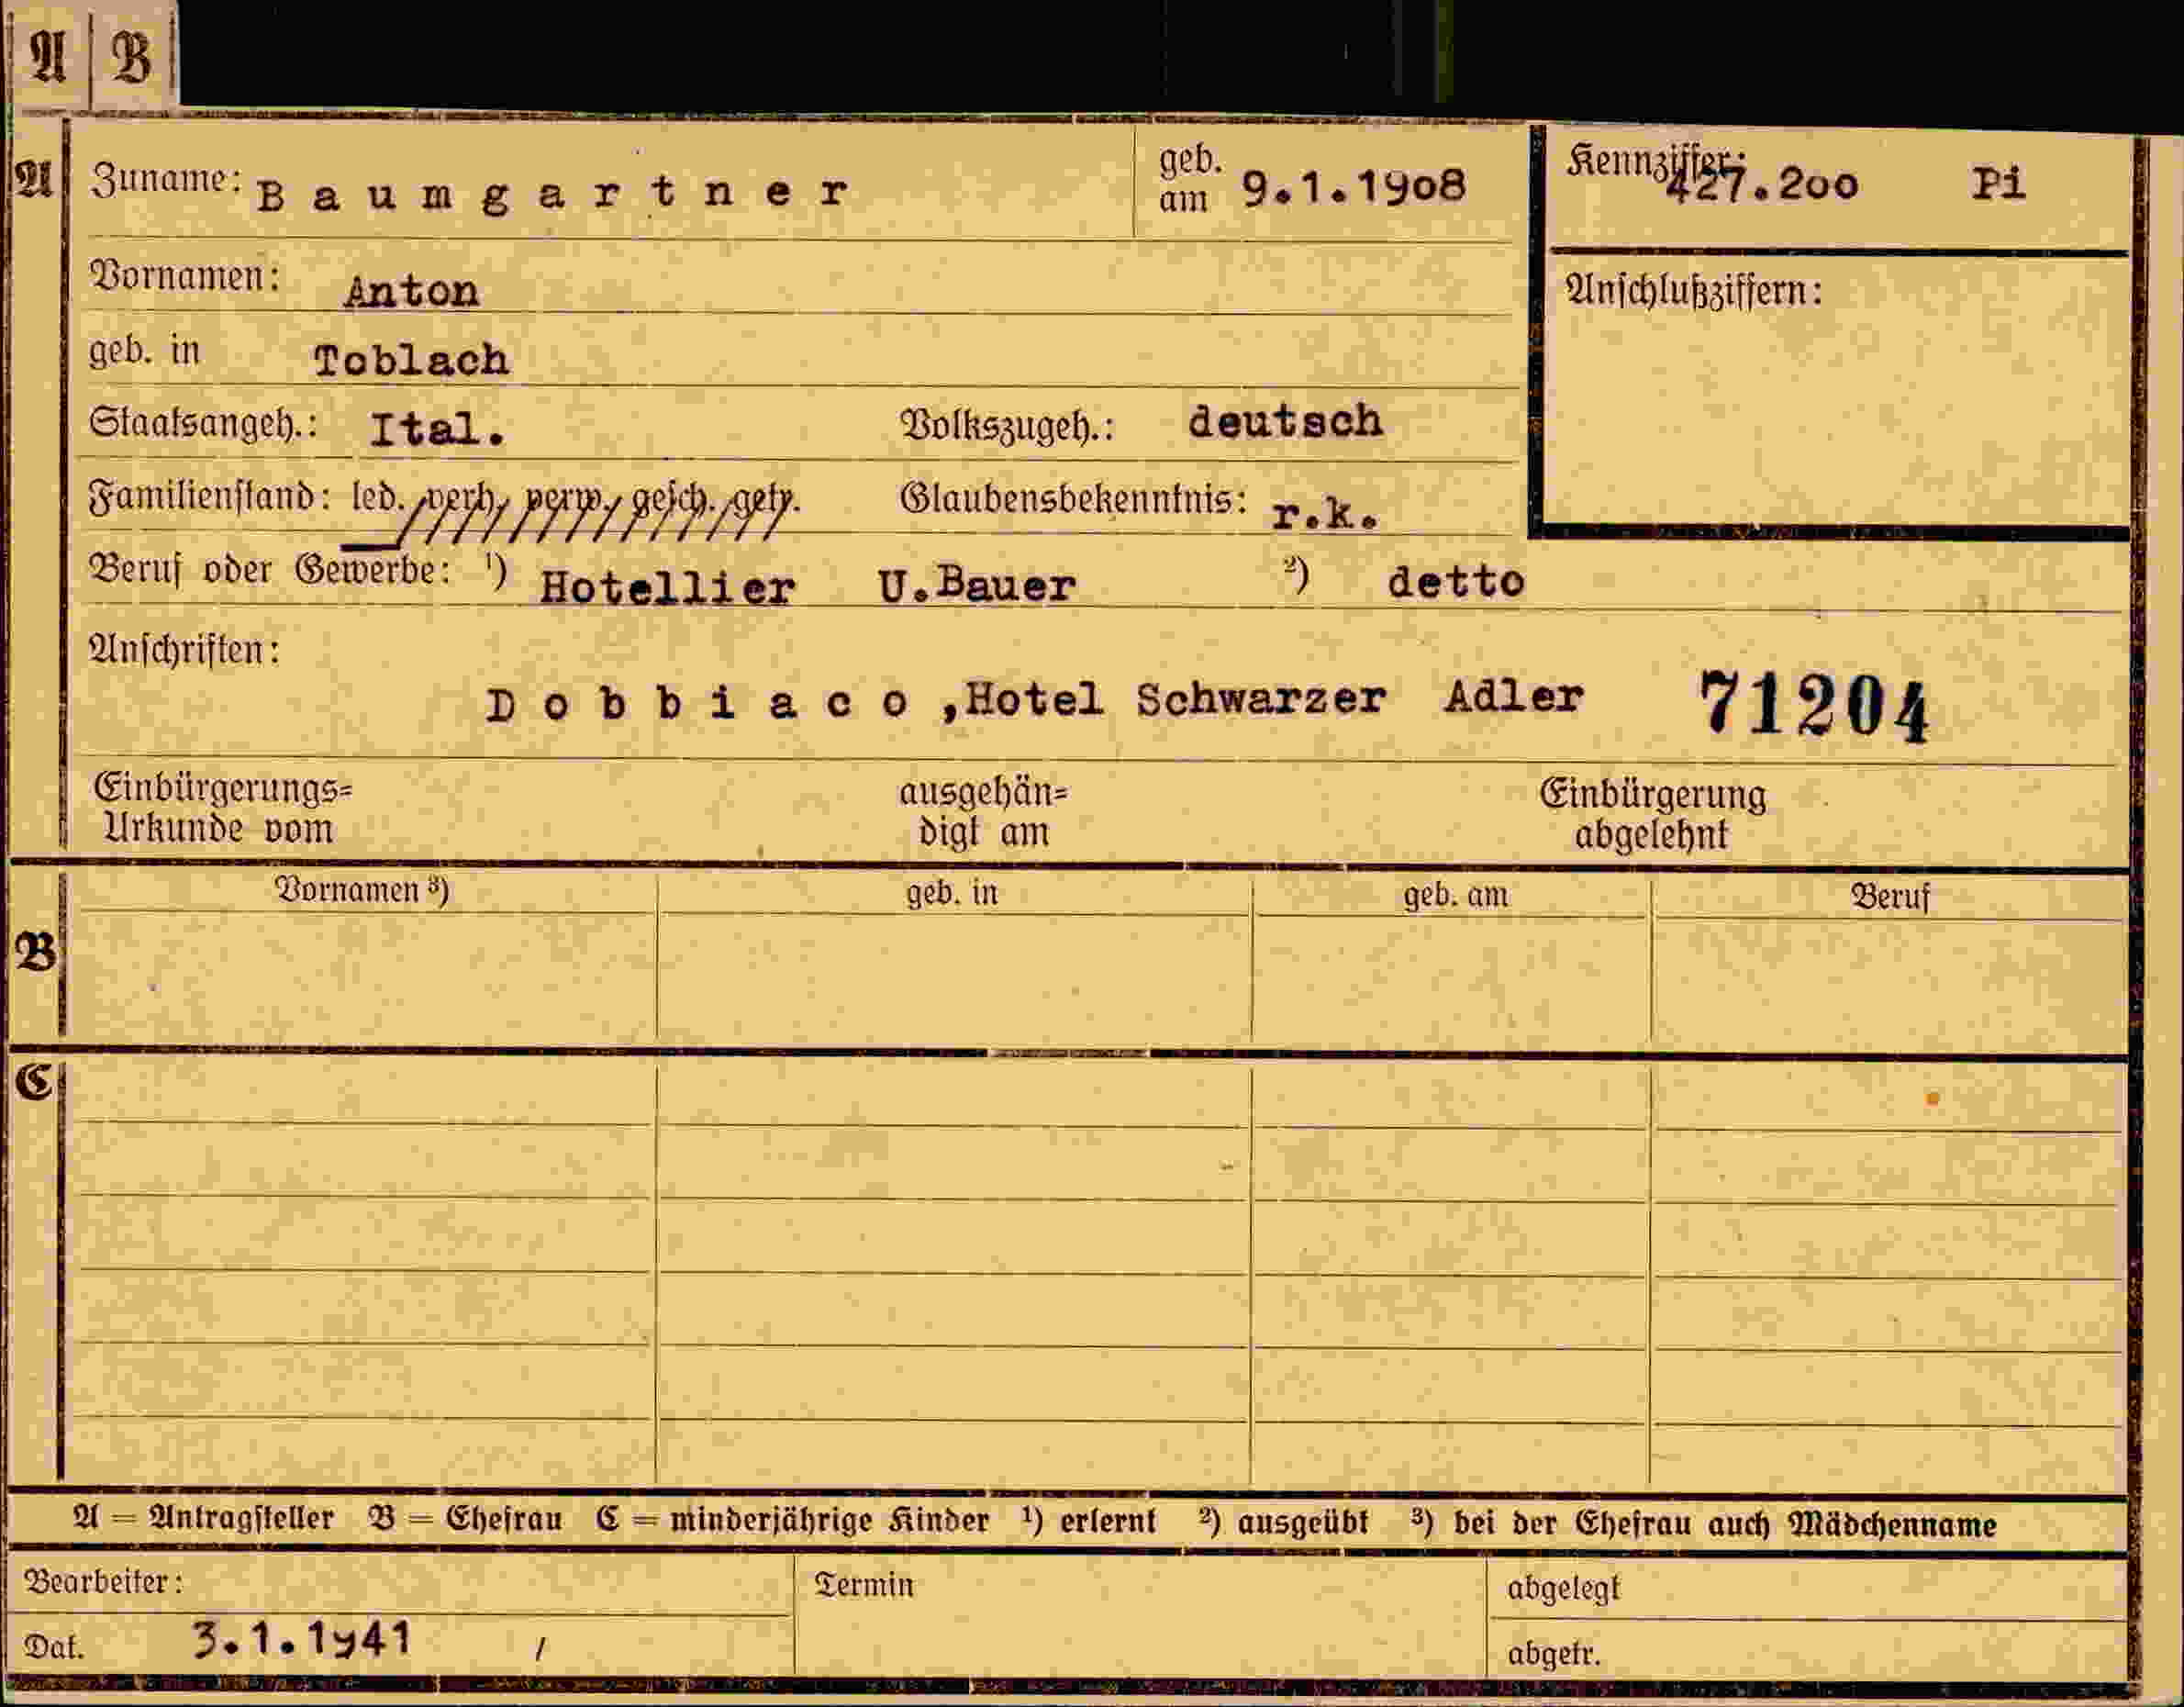 A B
A Zuname: Baumgartner geb. am 9.1.1908 Kennziffer: 427.200 Pi
Vornamen: Anton Anschlußziffern:
geb. in Toblach
Staatsangeh.: Ital. Volkszugeh.: deutsch
Familienstand: led., verh., verw., gesch., getr. Glaubensbekenntnis: r.k.
Beruf oder Gewerbe: ¹) Hotellier U.Bauer ²) detto
Anschriften:
Dobbiaco,Hotel Schwarzer Adler 71204
Einbürgerungs= ausgehän= Einbürgerung
Urkunde vom digt am abgelehnt
Vornamen ³) geb. in geb. am Beruf
B
C
A = Antragsteller B = Ehefrau C = minderjährige Kinder ¹) erlernt ²) ausgeübt ³) bei der Ehefrau auch Mädchenname
Bearbeiter: Termin abgelegt
Dat. 3.1.1941 / abgetr.